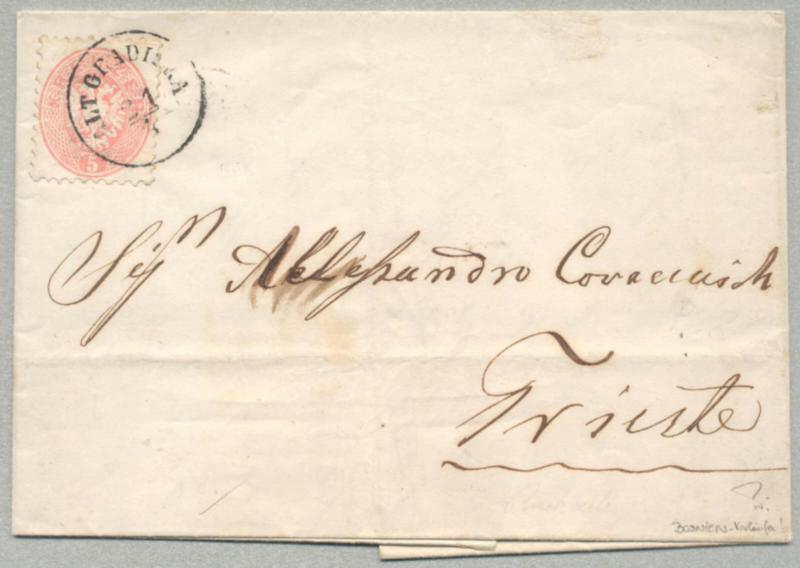 ALT GRADISKA
5
Sigr Allessandro Covacevich
Trieste
BOSNIEN-Vorläufer!